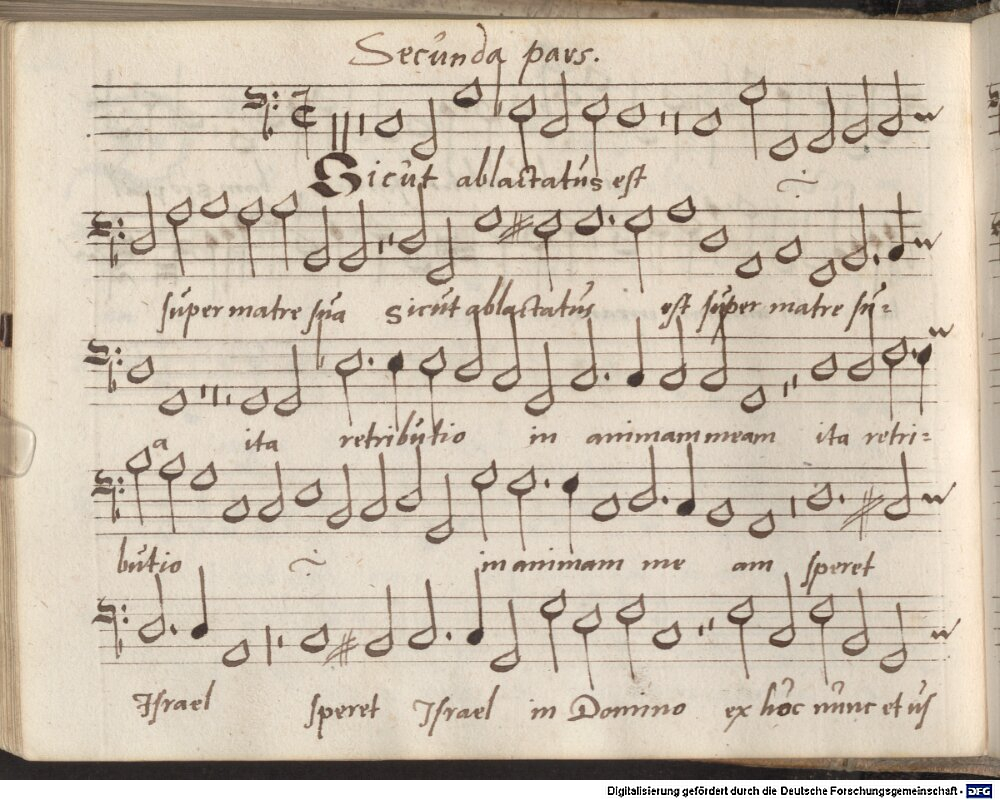 Secunda pars.
Sicut ablactatus est
super matre sua Sicut ablactatus est super matre su=
a ita retributio in animam meam ita retri=
butio in animam me am speret
Israel speret Israel in Domino ex hoc nunc et us
Digitalisierung gefördert durch die Deutsche Forschungsgemeinschaft - DFG